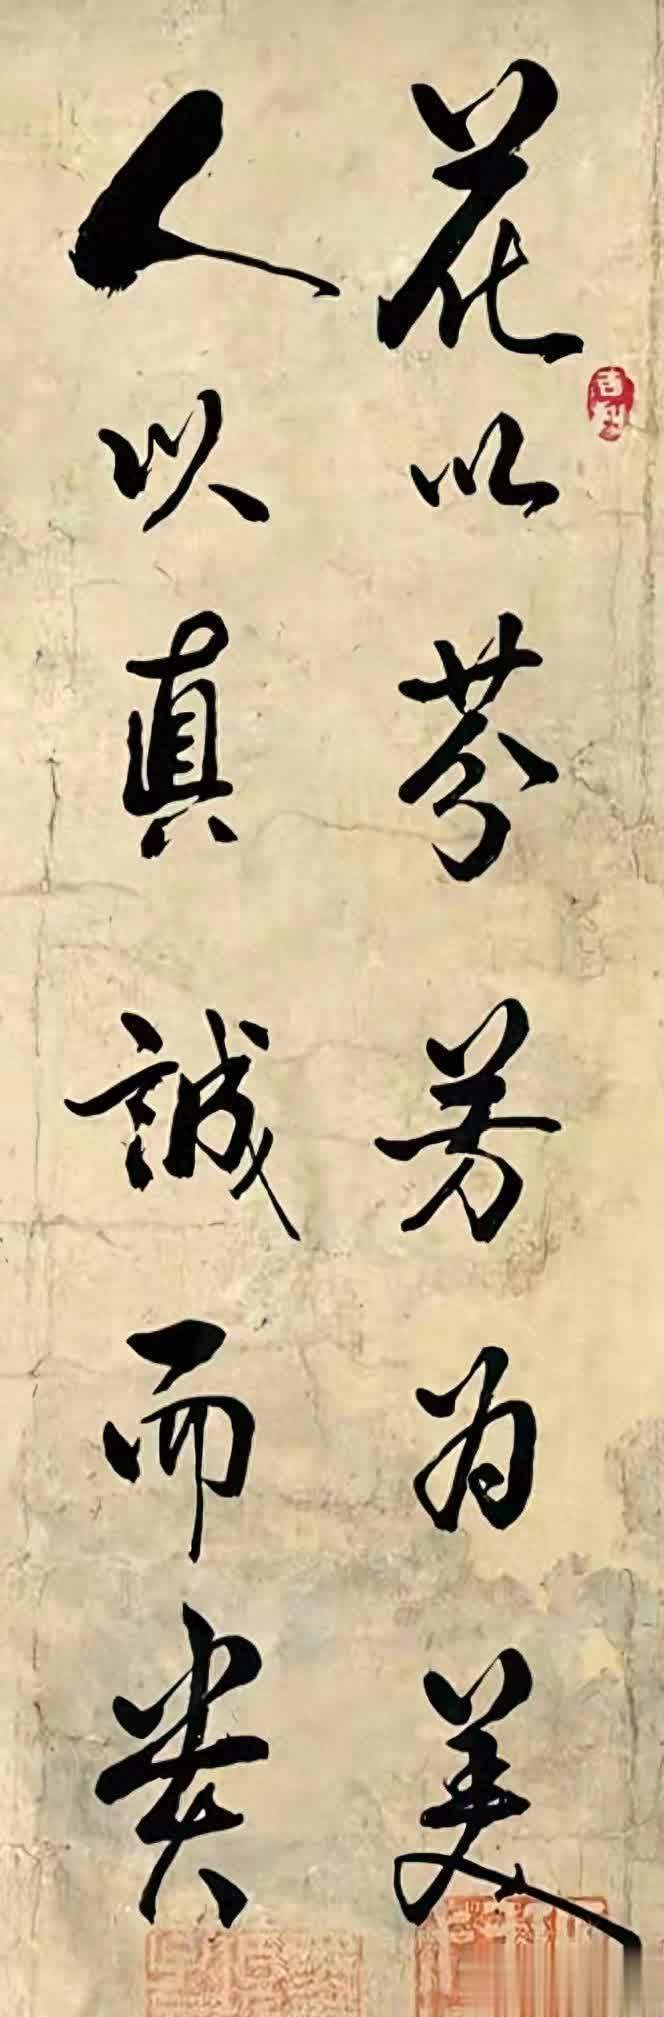 花以芬芳为美
人以真誠而贵